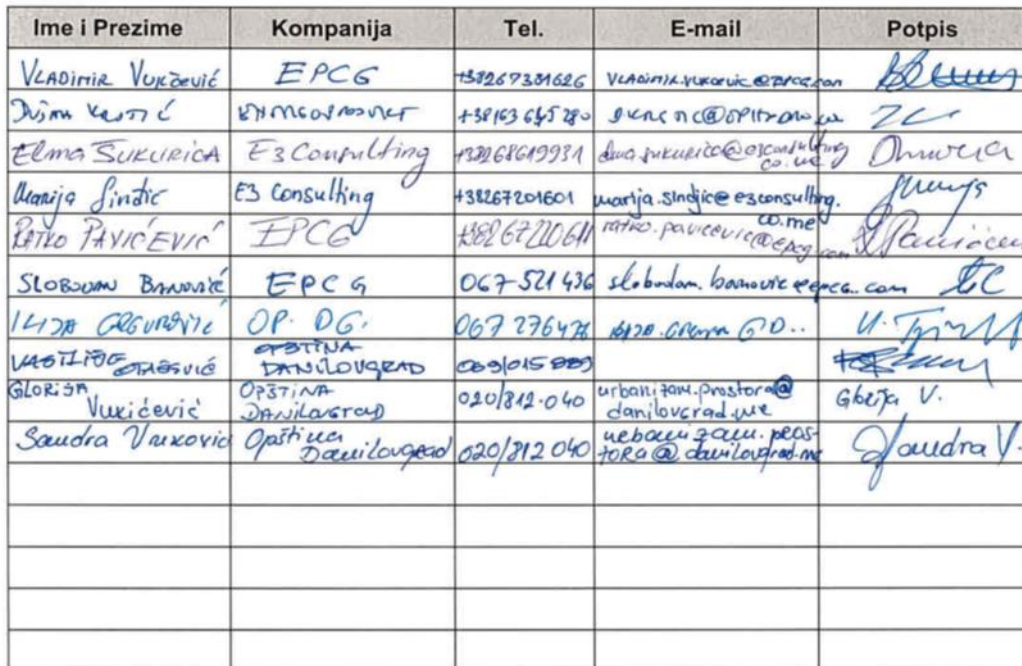 Ime i Prezime Kompanija Tel. E-mail Potpis
VLADIMIR VUKČEVIĆ EPCG +38267381626 VLADIMIR.VUKCEVIC@EPCG.COM
+38163645280
ELMA ŠUKURICA E3 Consulting +38268619931 elma.sukurica@e3consulting.co.me
Marija Šindić E3 Consulting +38267201601 marija.sindjic@e3consulting.co.me
RATKO PAVIĆEVIĆ EPCG +38267220611 ratko.pavicevic@epcg.com
SLOBODAN BANOVIĆ EPCG 067-521 436 slobodan.banovic@epcg.com
ILIJA GRGUROVIĆ OP. DG. 067 276476
OPŠTINA DANILOVGRAD
GLORIJA Vukićević OPŠTINA DANILOVGRAD 020/812-040 urbanizam.prostora@danilovgrad.me Glorija V.
Sandra Vuković Opština Danilovgrad 020/812 040 urbanizam.prostora@danilovgrad.me Sandra V.